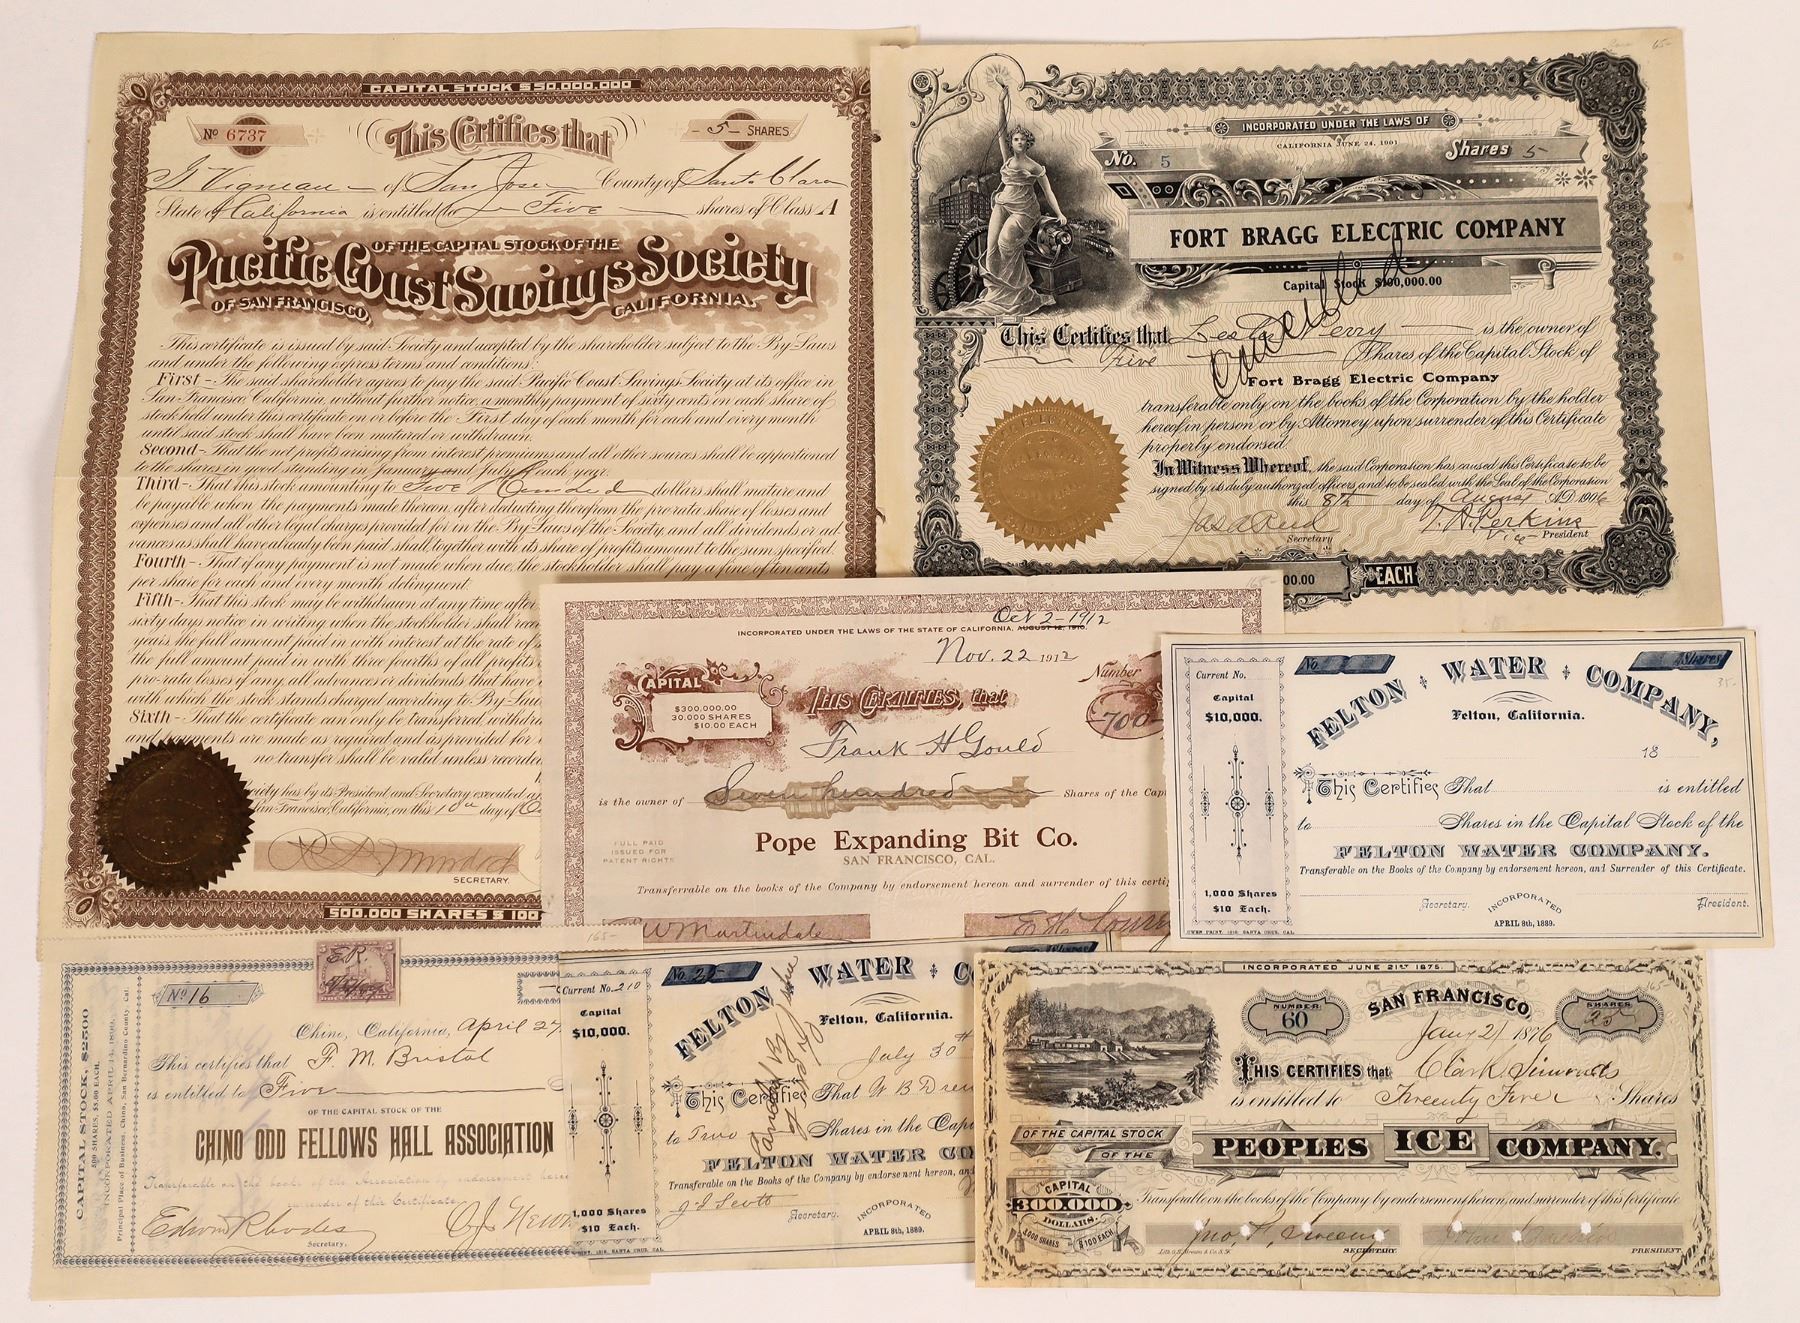 CAPITAL STOCK $50,000,000
No 6737
This Certifies that
- 5 - SHARES
J. Vigneau of San Jose County of Santa Clara
State of California is entitled to Five shares of Class A
OF THE CAPITAL STOCK OF THE
Pacific Coast Savings Society
OF SAN FRANCISCO, CALIFORNIA.
This certificate is issued by said Society and accepted by the shareholder subject to the By-Laws
and under the following express terms and conditions:
First - The said shareholder agrees to pay the said Pacific Coast Savings Society at its office in
San Francisco, California, without further notice, a monthly payment of sixty cents on each share of
stock held under this certificate on or before the First day of each month for each and every month
until said stock shall have been matured or withdrawn.
Second - That the net profits arising from interest premiums and all other sources shall be apportioned
to the shares in good standing in January and July of each year.
Third - That this stock amounting to Five Hundred dollars shall mature and
be payable when the payments made thereon, after deducting therefrom the pro rata share of losses and
expenses and all other legal charges provided for in the By-Laws of the Society, and all dividends or ad-
vances as shall have already been paid shall, together with its share of profits amount to the sum specified.
Fourth - That if any payment is not made when due, the stockholder shall pay a fine of ten cents
per share for each and every month delinquent.
Fifth - That this stock may be withdrawn at any time after
sixty days notice in writing when the stockholder shall
years the full amount paid in with interest at the rate of
the full amount paid in with three fourths of all profits
pro-rata losses of any, all advances or dividends that have
with which the stock stands charged according to By-L
Sixth - That the certificate can only be transferred, withdra
and payments are made as required and is provided for
no transfer shall be valid unless recorded
ciety has by its President and Secretary executed
San Francisco, California, on this 10th day of
SECRETARY.
500,000 SHARES $100
INCORPORATED UNDER THE LAWS OF
CALIFORNIA JUNE 24, 1901
No. 5
Shares 5
FORT BRAGG ELECTRIC COMPANY
Capital Stock $100,000.00
Cancelled
This Certifies that Perry is the owner of
Five Shares of the Capital Stock of
Fort Bragg Electric Company
transferable only on the books of the Corporation by the holder
hereof in person or by Attorney upon surrender of this Certificate
properly endorsed.
In Witness Whereof, the said Corporation has caused this Certificate to be
signed by its duly authorized officers, and to be sealed with the Seal of the Corporation
this 8th day of August A.D. 1906
Jas A Reid
T. A. Perkins
Secretary
Vice-President
00.00 EACH
165-
Oct 2-1912
INCORPORATED UNDER THE LAWS OF THE STATE OF CALIFORNIA, AUGUST 12, 1910.
Nov. 22 1912
Number
CAPITAL
$300,000.00
30,000 SHARES
$10.00 EACH
THIS CERTIFIES, that
-700-
Frank H Gould
is the owner of Seven hundred Shares of the Cap
Pope Expanding Bit Co.
SAN FRANCISCO, CAL.
FULL PAID
ISSUED FOR
PATENT RIGHTS
Transferrable on the books of the Company by endorsement hereon and surrender of this certi
W Martindale
Current No.
No.
Shares
35-
FELTON WATER COMPANY,
Felton, California.
Capital
$10,000.
18
This Certifies That is entitled
to Shares in the Capital Stock of the
FELTON WATER COMPANY.
Transferable on the Books of the Company by endorsement hereon, and Surrender of this Certificate.
1,000 Shares
$10 Each.
Secretary.
INCORPORATED
APRIL 8th, 1889.
President.
OWEN PRINT, 1218, SANTA CRUZ, CAL.
CAPITAL STOCK, $2500
500 SHARES, $5.00 EACH.
INCORPORATED APRIL 14, 1899.
Principal Place of Business, Chino, San Bernardino County, Cal.
No 16
E.R.
Chino, California, April 27
This certifies that F. M. Bristol
is entitled to Five
OF THE CAPITAL STOCK OF THE
CHINO ODD FELLOWS HALL ASSOCIATION
Transferable on the books of the Association by endorsement here
surrender of this Certificate
Edwin Rhodes
Secretary.
165-
Current No. 210
No. 25
Shares
FELTON WATER C
Felton, California.
Capital
$10,000.
July 30th
This Certifies That W B Drew
to Two Shares in the Cap
FELTON WATER CO
Transferable on the Books of the Company by endorsement hereon, an
J F Scott
1,000 Shares
$10 Each.
Secretary.
INCORPORATED
APRIL 8th, 1889.
INCORPORATED JUNE 21ST 1875.
165-
NUMBER
60
SAN FRANCISCO,
SHARES
25
Jany 21 1876
THIS CERTIFIES that Clark Simonds
is entitled to Twenty Five Shares
OF THE CAPITAL STOCK
OF THE
PEOPLES ICE COMPANY.
CAPITAL
300.000
DOLLARS.
$100 EACH
Transferable on the books of the Company by endorsement hereon, and surrender of this certificate
SECRETARY.
PRESIDENT